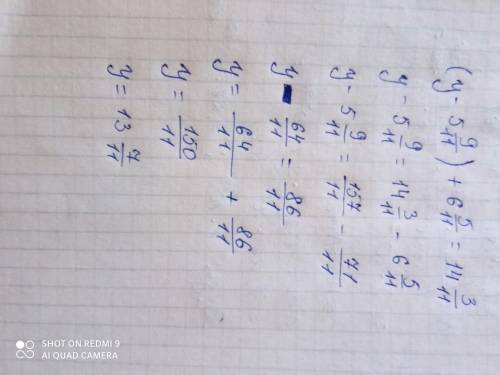 (y - 5 9/11) + 6 5/11 = 14 3/11
y - 5 9/11 = 14 3/11 - 6 5/11
y - 5 9/11 = 157/11 - 71/11
y - 64/11 = 86/11
y = 64/11 + 86/11
y = 150/11
y = 13 7/11
SHOT ON REDMI 9
AI QUAD CAMERA